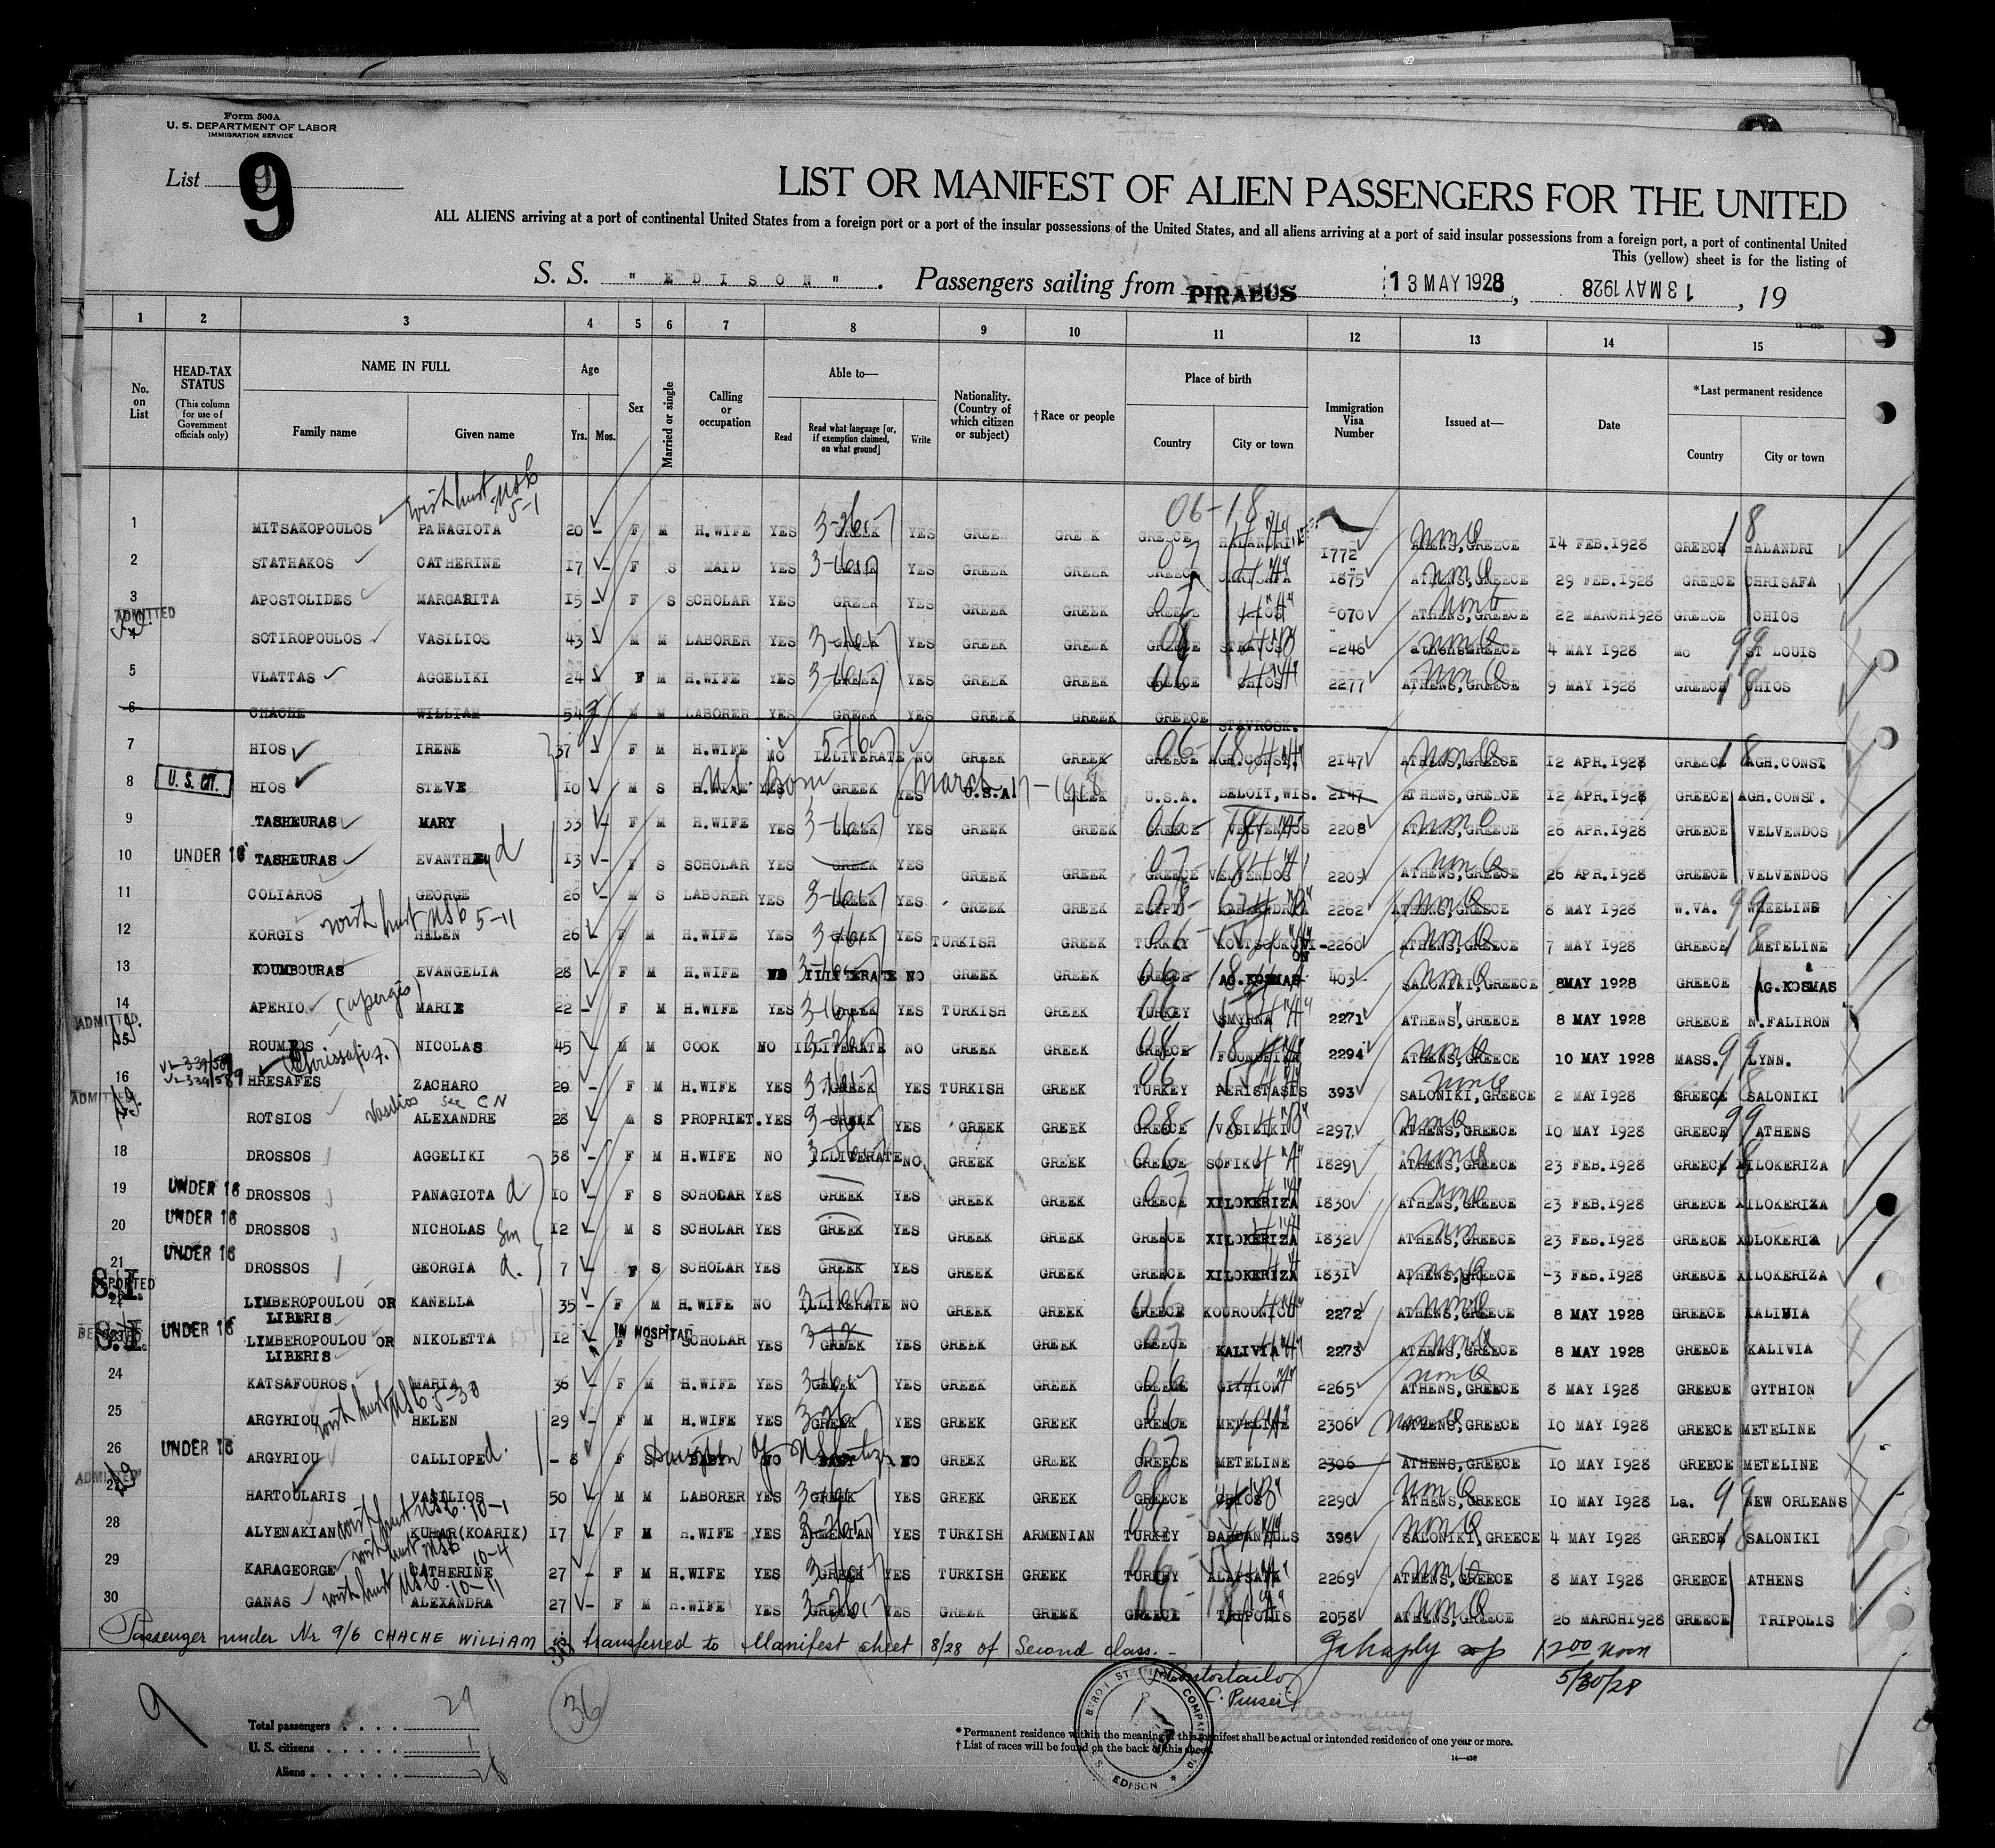 Form 500A
U. S. DEPARTMENT OF LABOR
IMMIGRATION SERVICE
List 9
LIST OR MANIFEST OF ALIEN PASSENGERS FOR THE UNITED
ALL ALIENS arriving at a port of continental United States from a foreign port or a port of the insular possessions of the United States, and all aliens arriving at a port of said insular possessions from a foreign port, a port of continental United
This (yellow) sheet is for the listing of
S. S. " EDISON " . Passengers sailing from PIRAEUS 13 MAY 1928, 13 MAY 1928, 19
1 2 3 4 5 6 7 8 9 10 11 12 13 14 15
No. on List HEAD-TAX STATUS (This column for use of Government officials only) NAME IN FULL Family name Given name Age Yrs. Mos. Sex Married or single Calling or occupation Able to— Read Read what language [or, if exemption claimed, on what ground] Write Nationality. (Country of which citizen or subject) †Race or people Place of birth Country City or town Immigration Visa Number Issued at— Date *Last permanent residence Country City or town
1 MITSAKOPOULOS PANAGIOTA 20 F M H.WIFE YES GREEK YES GREE GRE K GREECE HALANDRI 1772 ATHENS,GREECE 14 FEB.1928 GREECE HALANDRI
2 STATHAKOS CATHERINE 17 F S MAID YES GREEK YES GREEK GREEK GREECE CHRISAFA 1875 ATHENS,GREECE 29 FEB.1928 GREECE CHRISAFA
3 APOSTOLIDES MARGARITA 15 F S SCHOLAR YES GREEK YES GREEK GREEK GREECE CHIOS 2070 ATHENS,GREECE 22 MARCH1928 GREECE CHIOS
ADMITTED SOTIROPOULOS VASILIOS 43 M M LABORER YES GREEK YES GREEK GREEK GREECE 2246 athensGREECE 4 MAY 1928 Mo ST LOUIS
5 VLATTAS AGGELIKI 24 F M H.WIFE YES GREEK YES GREEK GREEK GREECE CHIOS 2277 ATHENS,GREECE 9 MAY 1928 GREECE CHIOS
6 CHACHE WILLIAM 54 M M LABORER YES GREEK YES GREEK GREEK GREECE STAVROSK.
7 HIOS IRENE 37 F M H.WIFE NO ILLITERATE NO GREEK GREEK GREECE AGH.CONST. 2147 ATHENS,GREECE 12 APR.1928 GREECE AGH.CONST.
8 U. S. CIT. HIOS STEVE 10 M S H.WIFE YES GREEK YES U.S.A. GREEK U.S.A. BELOIT,WIS. 2147 ATHENS,GREECE 12 APR.1928 GREECE AGH.CONST.
U.S. Born March 17-1918
9 TASHEURAS MARY 33 F M H.WIFE YES GREEK YES GREEK GREEK GREECE VELVENDOS 2208 ATHENS,GREECE 26 APR.1928 GREECE VELVENDOS
10 UNDER 16 TASHEURAS EVANTHEY d 13 F S SCHOLAR YES GREEK YES GREEK GREEK GREECE VELVENDOS 2209 ATHENS,GREECE 26 APR.1928 GREECE VELVENDOS
11 COLIAROS GEORGE 26 M S LABORER YES GREEK YES GREEK GREEK EGYPT 2262 ATHENS,GREECE 8 MAY 1928 W.VA. WHEELING
12 KORGIS HELEN 26 F M H.WIFE YES GREEK YES TURKISH GREEK TURKEY 2260 ATHENS,GREECE 7 MAY 1928 GREECE METELINE
13 KOUMBOURAS EVANGELIA 28 F M H.WIFE NO ILLITERATE NO GREEK GREEK GREECE AG.KOSMAS 403 SALONIKI,GREECE 8MAY 1928 GREECE AG.KOSMAS
14 APERIO (apergis) MARIE 22 F M H.WIFE YES GREEK YES TURKISH GREEK TURKEY SMYRNA 2271 ATHENS,GREECE 8 MAY 1928 GREECE N.FALIRON
ADMITTED NICOLAS 45 M M COOK NO ILLITERATE NO GREEK GREEK GREECE 2294 ATHENS,GREECE 10 MAY 1928 MASS. LYNN.
16 HRESAFES (Chrissafis.) ZACHARO 20 F M H.WIFE YES GREEK YES TURKISH GREEK TURKEY PERISTASIS 393 SALONIKI,GREECE 2 MAY 1928 GREECE SALONIKI
ADMITTED ROTSIOS Vasilios see CN ALEXANDRE 28 M S PROPRIET. YES GREEK YES GREEK GREEK GREECE VASILIKI 2297 ATHENS,GREECE 10 MAY 1928 GREECE ATHENS
18 DROSSOS AGGELIKI 38 F M H.WIFE NO ILLITERATE NO GREEK GREEK GREECE SOFIKO 1829 ATHENS,GREECE 23 FEB.1928 GREECE XILOKERIZA
19 UNDER 16 DROSSOS PANAGIOTA d 10 F S SCHOLAR YES GREEK YES GREEK GREEK GREECE XILOKERIZA 1830 ATHENS,GREECE 23 FEB.1928 GREECE XILOKERIZA
20 UNDER 16 DROSSOS NICHOLAS Son 12 M S SCHOLAR YES GREEK YES GREEK GREEK GREECE XILOKERIZA 1832 ATHENS,GREECE 23 FEB.1928 GREECE XOLOKERIZA
21 UNDER 16 DROSSOS GEORGIA d. 7 F S SCHOLAR YES GREEK YES GREEK GREEK GREECE XILOKERIZA 1831 ATHENS,GREECE -3 FEB.1928 GREECE XILOKERIZA
S.I. 22 LIMBEROPOULOU OR KANELLA 35 F M H.WIFE NO ILLITERATE NO GREEK GREEK GREECE 2272 ATHENS,GREECE 8 MAY 1928 GREECE KALIVIA
LIBERIS
S.I. UNDER 16 LIMBEROPOULOU OR NIKOLETTA 12 F S IN HOSPITAL SCHOLAR YES GREEK YES GREEK GREEK GREECE KALIVIA 2273 ATHENS,GREECE 8 MAY 1928 GREECE KALIVIA
LIBERIS
24 KATSAFOUROS MARIA 36 F M H.WIFE YES GREEK YES GREEK GREEK GREECE GITHION 2265 ATHENS,GREECE 8 MAY 1928 GREECE GYTHION
25 ARGYRIOU HELEN 29 F M H.WIFE YES GREEK YES GREEK GREEK GREECE METELINE 2306 ATHENS,GREECE 10 MAY 1928 GREECE METELINE
26 UNDER 16 ARGYRIOU CALLIOPE d. - 8 F S BABY NO BABY NO GREEK GREEK GREECE METELINE 2306 ATHENS,GREECE 10 MAY 1928 GREECE METELINE
ADMITTED 27 HARTOULARIS VASILIOS 50 M M LABORER YES GREEK YES GREEK GREEK GREECE CHIOS 2290 ATHENS,GREECE 10 MAY 1928 La. NEW ORLEANS
28 ALYENAKIAN KUHAR(KOARIK) 17 F M H.WIFE YES ARMENIAN YES TURKISH ARMENIAN TURKEY DARDANELLS 396 SALONIKI,GREECE 4 MAY 1928 GREECE SALONIKI
29 KARAGEORGE CATHERINE 27 F M H.WIFE YES GREEK YES TURKISH GREEK TURKEY 2269 ATHENS,GREECE 8 MAY 1928 GREECE ATHENS
30 GANAS ALEXANDRA 27 F M H.WIFE YES GREEK YES GREEK GREEK GREECE TRIPOLIS 2058 ATHENS,GREECE 26 MARCH1928 GREECE TRIPOLIS
Passenger under Nr 9/6 CHACHE WILLIAM transferred to Manifest sheet 8/28 of Second class.-
12 00 noon
5/30/28
C. Purser
9
36
Total passengers . . . . 29
U. S. citizens . . . . . 1
Aliens . . . . . . 28
BYRON STEAMSHIP COMPANY S.S. EDISON
* Permanent residence within the meaning of this manifest shall be actual or intended residence of one year or more.
† List of races will be found on the back of this sheet.
14—430